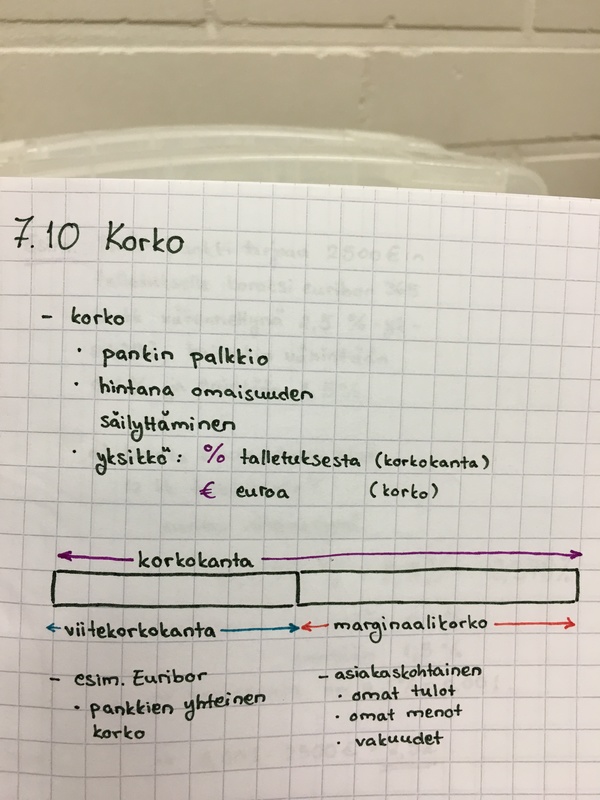 7.10 Korko
- korko
· pankin palkkio
· hintana omaisuuden
säilyttäminen
· yksikkö: % talletuksesta (korkokanta)
€ euroa (korko)
korkokanta
viitekorkokanta marginaalikorko
- esim. Euribor
· pankkien yhteinen
korko
- asiakaskohtainen
· omat tulot
· omat menot
· vakuudet